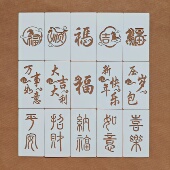 福
福
福
福
福
万事如意
大吉大利
福
新年快乐
压岁包
平安
招财
纳福
如意
喜乐